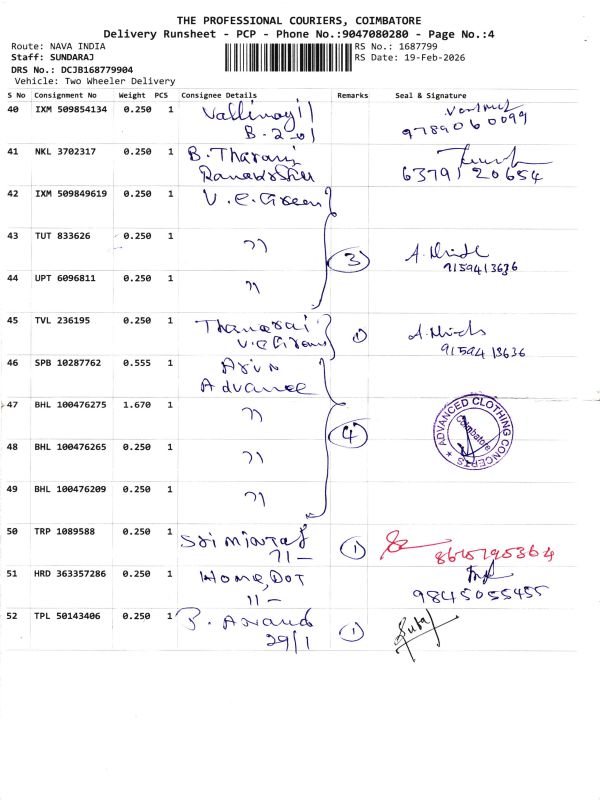 THE PROFESSIONAL COURIERS, COIMBATORE
Delivery Runsheet - PCP - Phone No.:9047080280 - Page No.:4
Route: NAVA INDIA RS No.: 1687799
Staff: SUNDARAJ RS Date: 19-Feb-2026
DRS No.: DCJB168779904
Vehicle: Two Wheeler Delivery
S No Consignment No Weight PCS Consignee Details Remarks Seal & Signature
40 IXM 509854134 0.250 1
B-201 9789060099
41 NKL 3702317 0.250 1 B. Tharani
6379120654
42 IXM 509849619 0.250 1 V.C. Green
43 TUT 833626 0.250 1 " 3
9159413636
44 UPT 6096811 0.250 1 "
45 TVL 236195 0.250 1 1
9159413636
46 SPB 10287762 0.555 1 Arun
Advance
47 BHL 100476275 1.670 1 " 4 ADVANCED CLOTHING CONCEPTS Coimbatore
48 BHL 100476265 0.250 1 "
49 BHL 100476209 0.250 1 "
50 TRP 1089588 0.250 1 Sri 1
71 -
51 HRD 363357286 0.250 1 Home Dot
11 - 9845055455
52 TPL 50143406 0.250 1 P. Anand 1
29/1